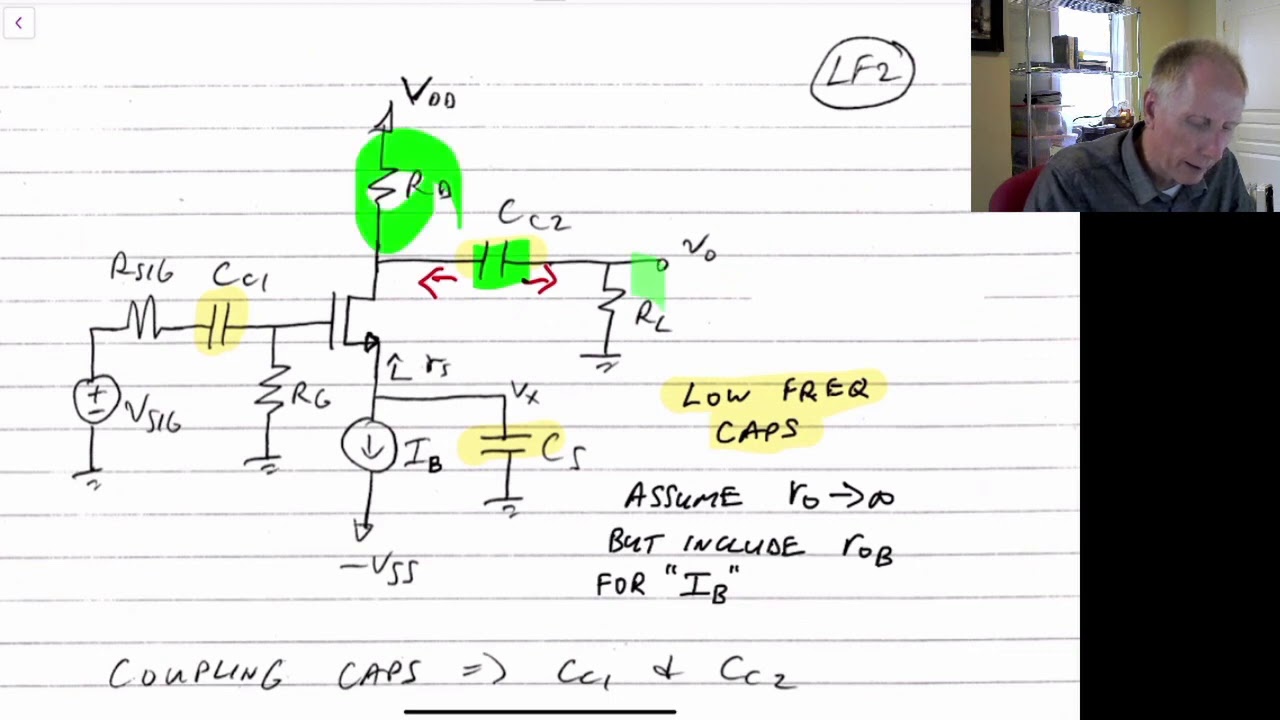 LF2
VDD
RD
CC2
vo
RSIG
CC1
RL
rs
RG
VSIG
vx
LOW FREQ
CAPS
IB
CS
ASSUME ro → ∞
BUT INCLUDE roB
FOR "IB"
-VSS
COUPLING CAPS => CC1 & CC2